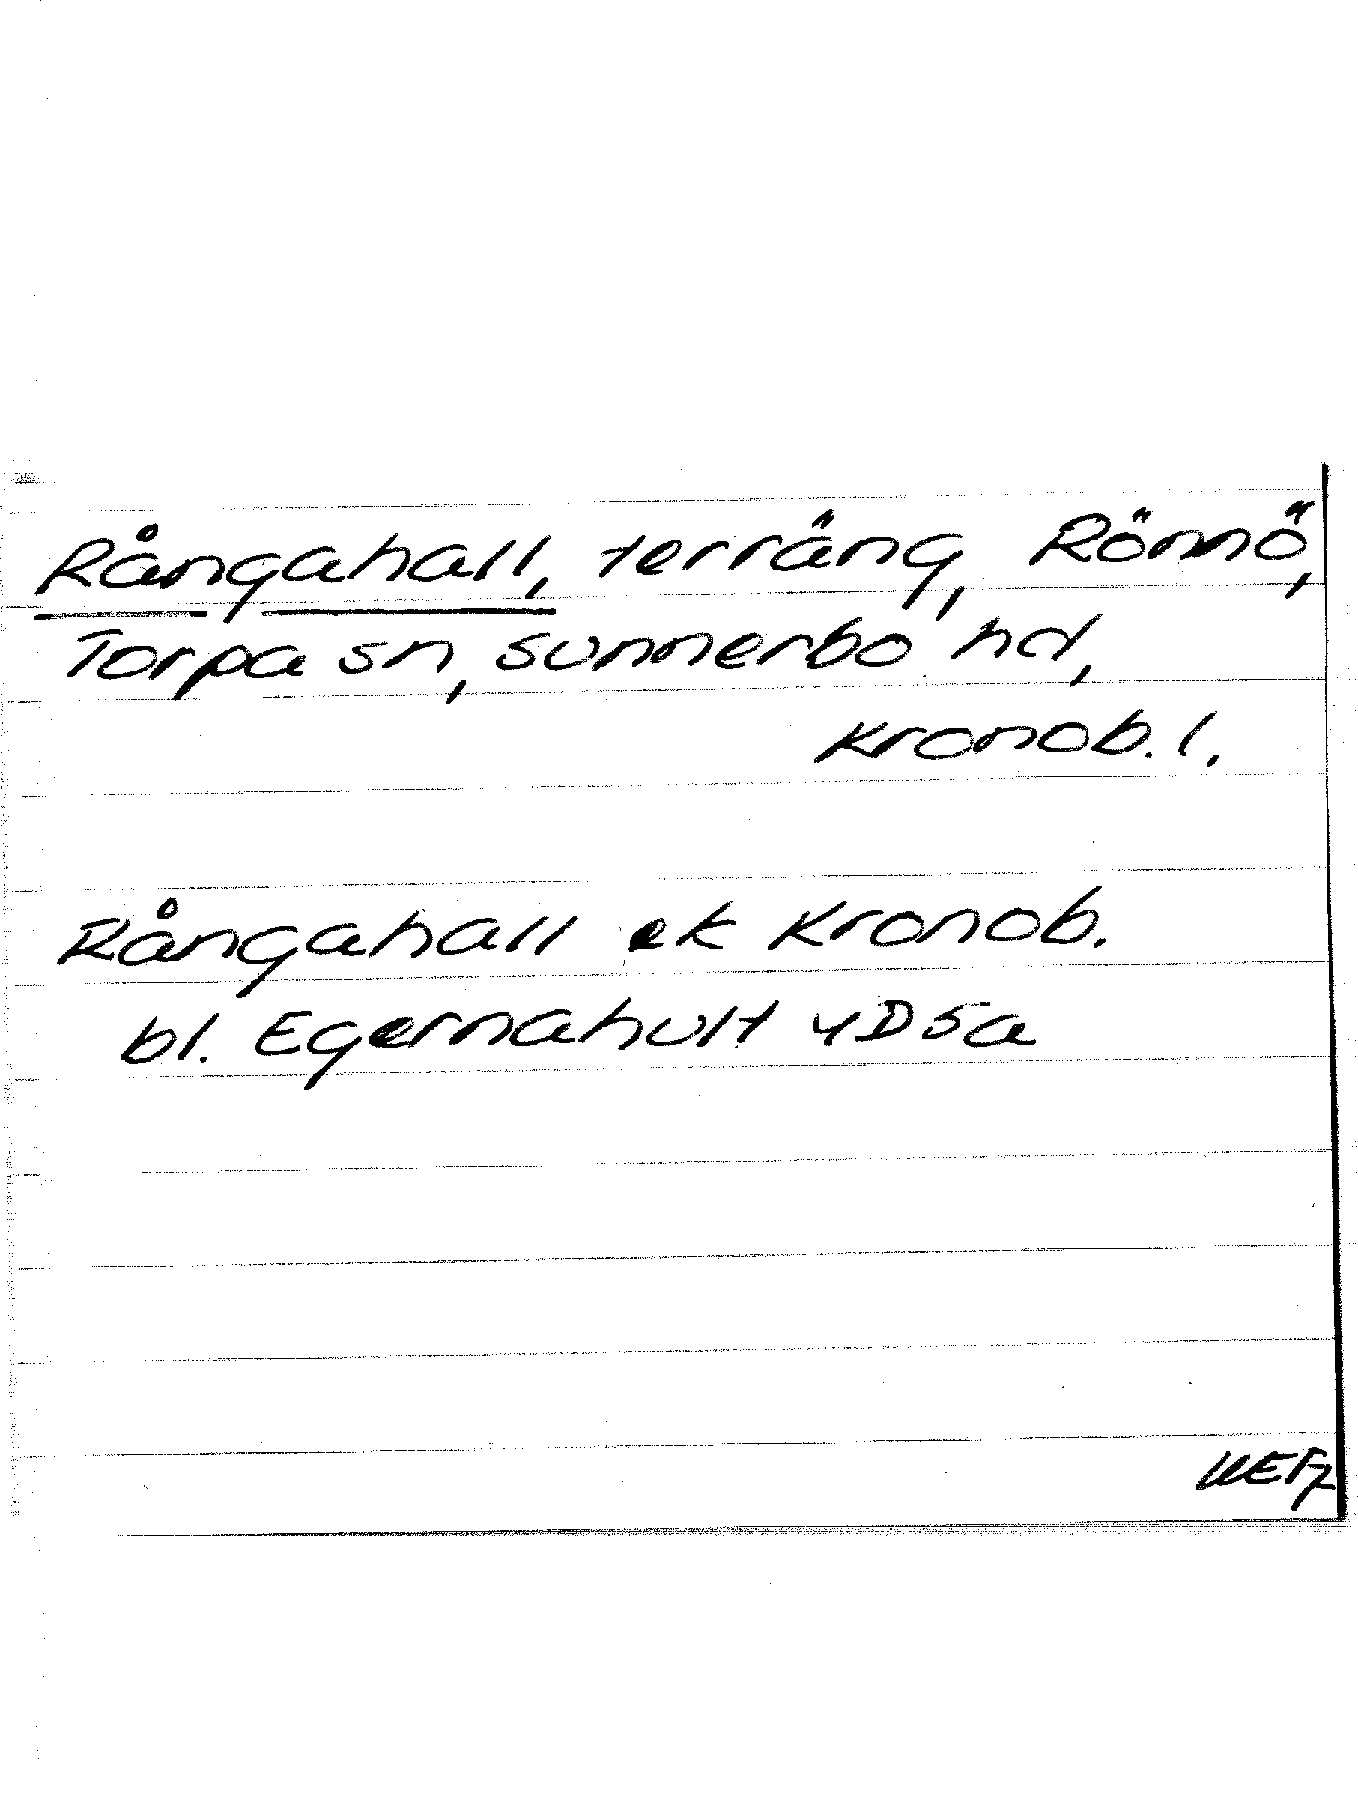 Rångahall, terräng, Rönnö,
Torpa sn, Sunnerbo hd,
Kronob. l.
Rångahall ek Kronob.
bl. Egernahult 4D5a